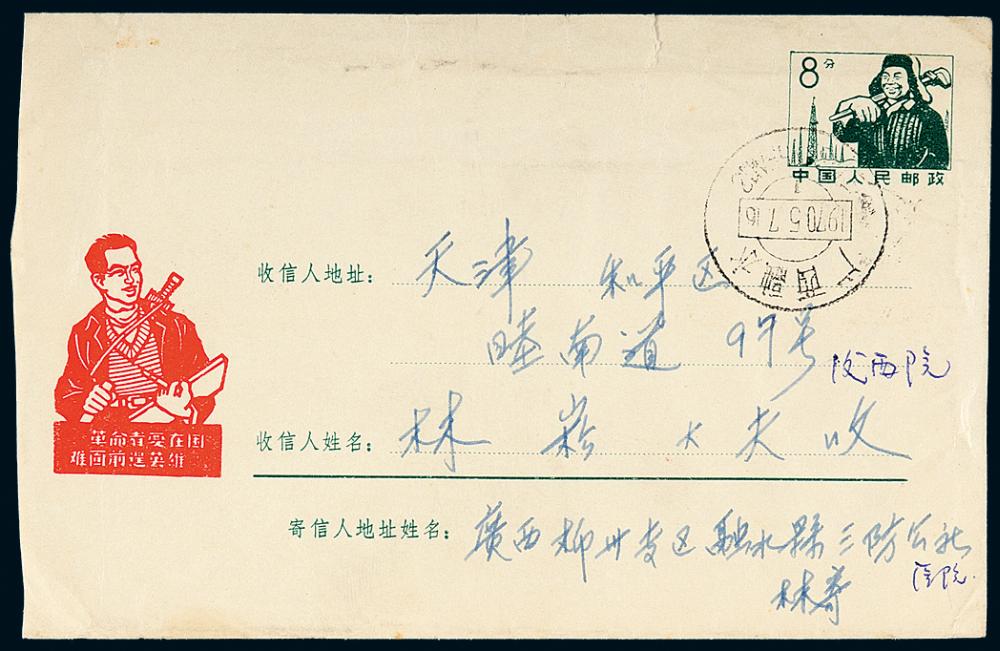 8分
中国人民邮政
广西融水
1970.5.7.16
收信人地址：天津 和平区
睦南道 97号
后西院
收信人姓名：林崧大夫收
革命者要在困
难面前逞英雄
寄信人地址姓名：廣西柳州专区融水縣三防公社
医院
林寄